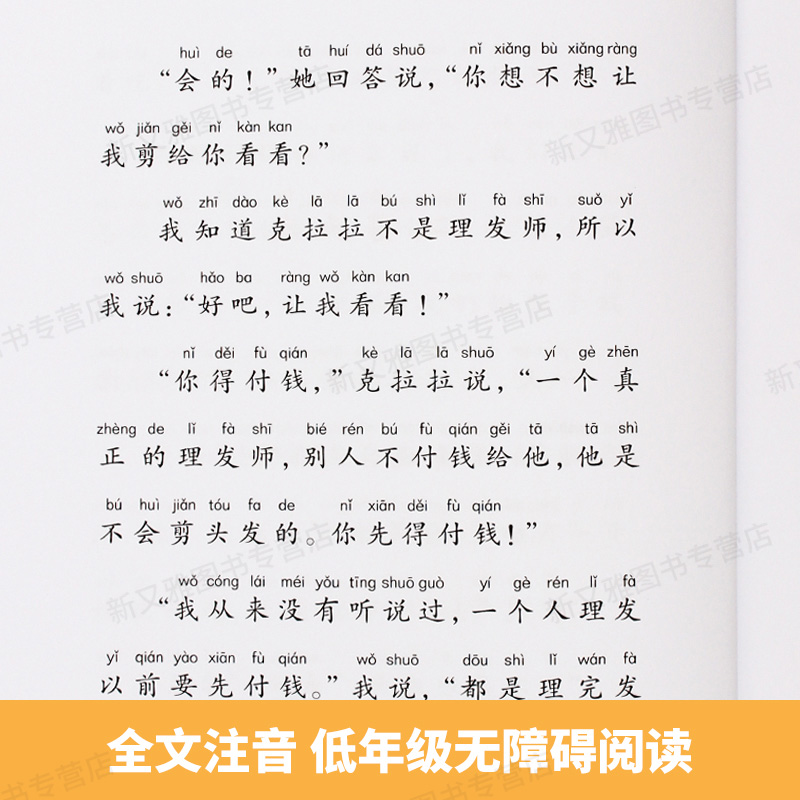 huì de tā huí dá shuō nǐ xiǎng bù xiǎng ràng
“会的！”她回答说，“你想不想让
wǒ jiǎn gěi nǐ kàn kan
我剪给你看看？”
wǒ zhī dào kè lā lā bú shì lǐ fà shī suǒ yǐ
我知道克拉拉不是理发师，所以
wǒ shuō hǎo ba ràng wǒ kàn kan
我说：“好吧，让我看看！”
nǐ děi fù qián kè lā lā shuō yí gè zhēn
“你得付钱，”克拉拉说，“一个真
zhèng de lǐ fà shī bié rén bú fù qián gěi tā tā shì
正的理发师，别人不付钱给他，他是
bú huì jiǎn tóu fa de nǐ xiān děi fù qián
不会剪头发的。你先得付钱！”
wǒ cóng lái méi yǒu tīng shuō guò yí gè rén lǐ fà
“我从来没有听说过，一个人理发
yǐ qián yào xiān fù qián wǒ shuō dōu shì lǐ wán fà
以前要先付钱。”我说，“都是理完发
全文注音 低年级无障碍阅读
新又雅图书专营店